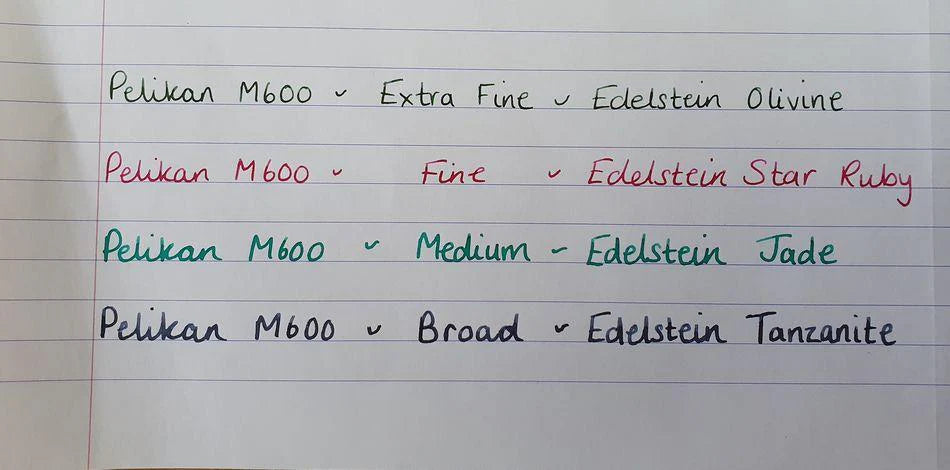 Pelikan M600 ~ Extra Fine ~ Edelstein Olivine
Pelikan M600 ~ Fine ~ Edelstein Star Ruby
Pelikan M600 ~ Medium ~ Edelstein Jade
Pelikan M600 ~ Broad ~ Edelstein Tanzanite